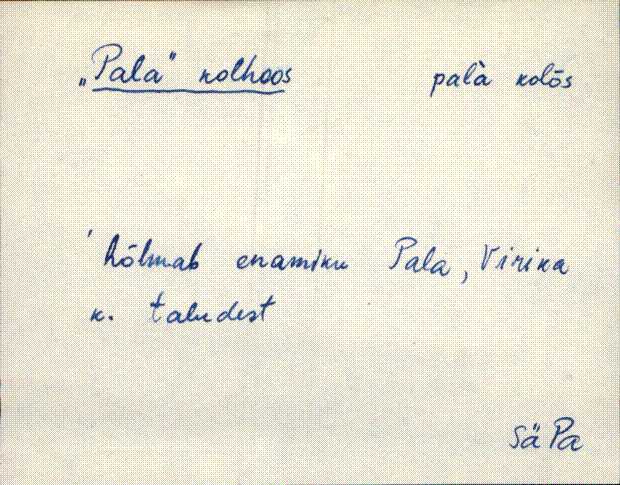 „Pala“ kolhoos palà kolõs
'hõlmab enamiku Pala, Virika
k. taludest
SäPa